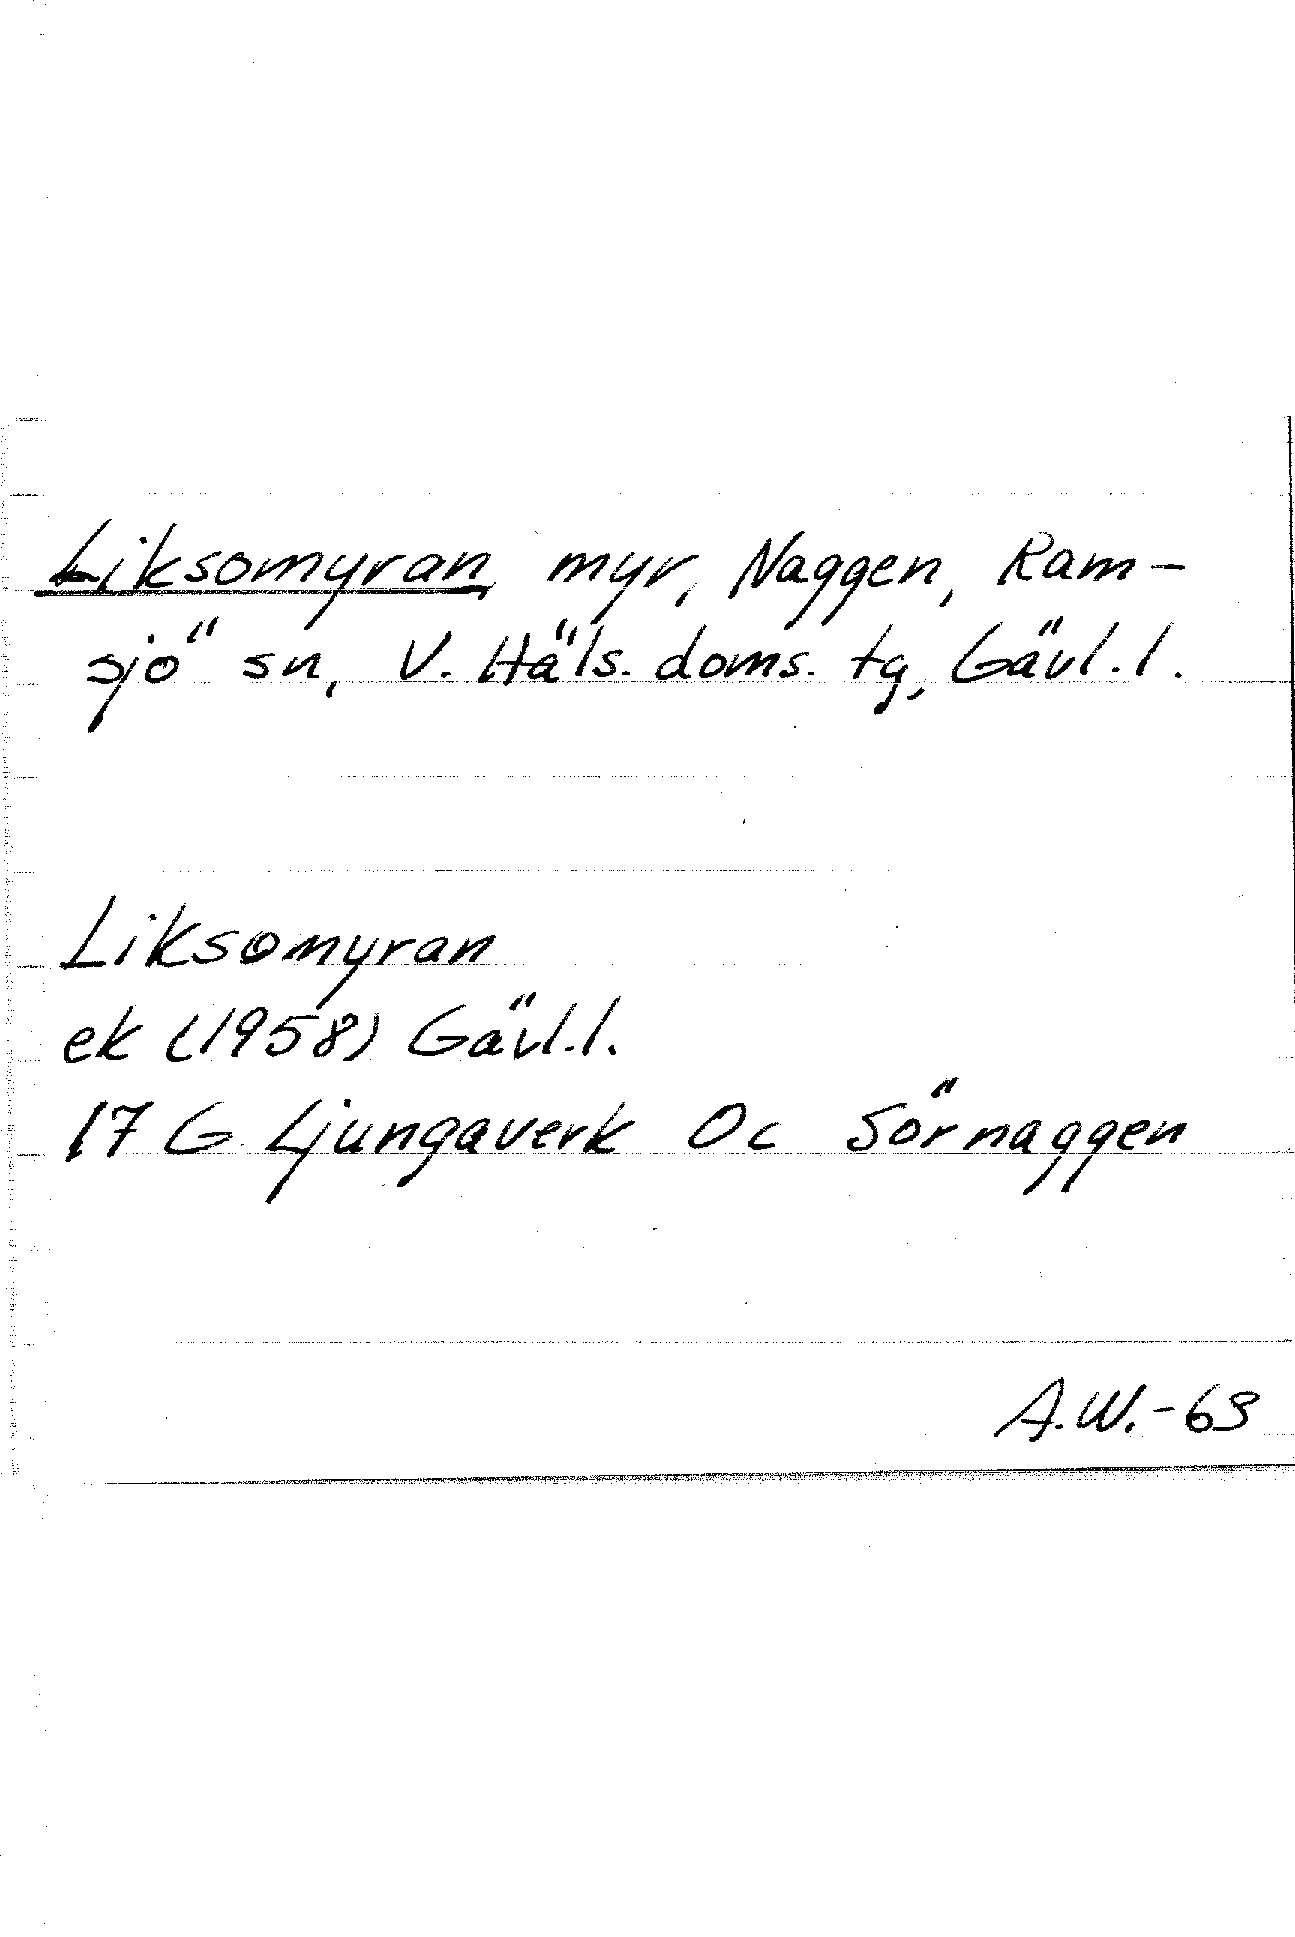 Liksomyran, myr, Naggen, Ram-
sjö sn, V. Häls. doms. tg, Gävl.l.
Liksomyran
ek (1958) Gävl.l.
17 G Ljungaverk Oc Sörnaggen
A.W.-63